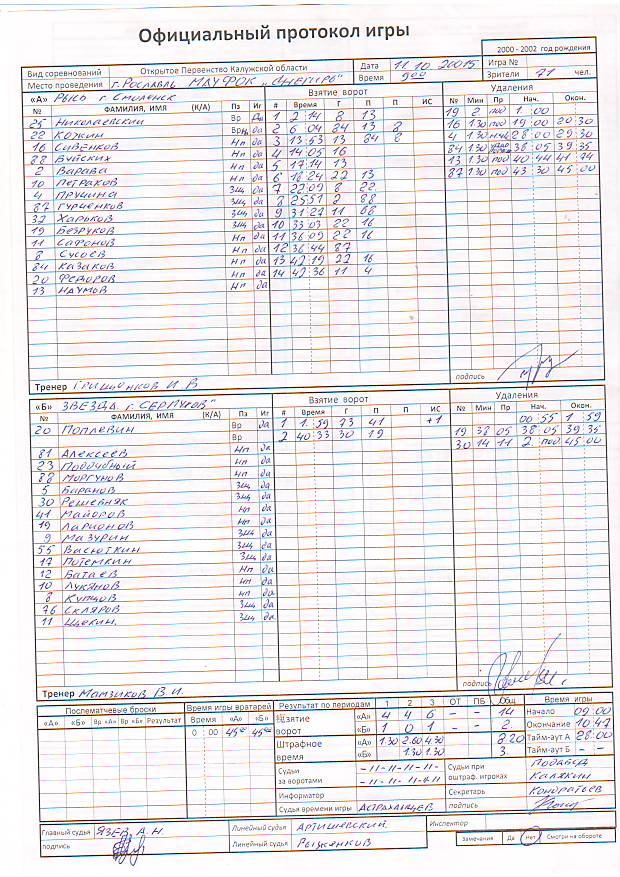 Официальный протокол игры
2000 - 2002 год рождения
Вид соревнований Открытое Первенство Калужской области Дата 11.10.20015 Игра №
Место проведения г. Рославль МАУФОК „Снегирь" Время 9 00 Зрители 71 чел.
«А» Рысь г Смоленск Взятие ворот Удаления
№ ФАМИЛИЯ, ИМЯ (К/А) Пз Иг # Время Г П П ИС № Мин Пр Нач. Окон.
25 Николаевский Вр Да 1 2 14 8 13 19 2 под 1 00
22 Кожин Вр да 2 6 04 84 13 8 16 1 30 под 19 00 20 30
16 Сивенков Нп да 3 13 53 13 84 8 4 1 30 28 00 29 30
88 Буйских Нп да 4 14 05 16 84 1 30 38 05 39 35
2 Варава Нп да 5 17 14 13 13 1 30 под 40 44 41 74
10 Петраков Нп да 6 18 24 22 13 87 1 30 под 43 30 45 00
4 Пручина Зщ да 7 22 09 8 22
87 Гурченков Зщ да 8 25 51 2 88
32 Харьков Зщ да 9 31 27 11 88
19 Безруков Зщ да 10 33 03 22 16
11 Сафонов Нп да 11 36 09 22 16
8 Сусоев Нп да 12 36 44 87
84 Казаков Нп да 13 42 19 22 16
20 Федоров Нп да 14 42 36 11 4
13 Наумов Нп да
подпись
Тренер Грищенков И. В
«Б» Звезда г. Серпухов" Взятие ворот Удаления
№ ФАМИЛИЯ, ИМЯ (К/А) Пз Иг # Время Г П П ИС № Мин Пр Нач. Окон.
20 Поплевин Вр да 1 1 59 23 41 +1 00 55 1 59
Вр 2 40 33 30 19 19 38 05 38 05 39 35
81 Алексеев Нп да 30 14 11 2 под 45 00
23 Подобный Нп да
88 Моргунов Нп да
5 Баранов Зщ да
30 Решевняк Зщ да
41 Майоров Нп да
19 Ларионов Зщ да
9 Мазурин Зщ да
55 Васюткин Зщ да
17 Потемкин Зщ да
12 Батаев Нп да
10 Лукянов Нп да
8 Купцов Зщ да
76 Скляров Зщ да
11 Щекин. Зщ да
подпись
Тренер Мамзиков В. И.
Послематчевые броски Время игры вратарей Результат по периодам 1 2 3 ОТ ПБ Общ Время игры
«А» «Б» Вр «А» Вр «Б» Результат Время «А» «Б» Взятие ворот «А» 4 4 6 - - 14 Начало 09 00
0 00 45 00 45 00 «Б» 1 0 1 - - 2 Окончание 10 47
Штрафное время «А» 1.30 2.60 4.30 8.20 Тайм-аут А 28:00
«Б» 1.30 1.30 3 Тайм-аут Б - -
Судьи за воротами -11-11-11-11- Судьи при оштраф. игроках
Калякин
Информатор Секретарь Кондратьев
Судья времени игры Астраханцев подпись
Главный судья Язев. А. Н. Линейный судья Артишевский Инспектор
подпись Линейный судья Рыженков Замечания Да Нет Смотри на обороте